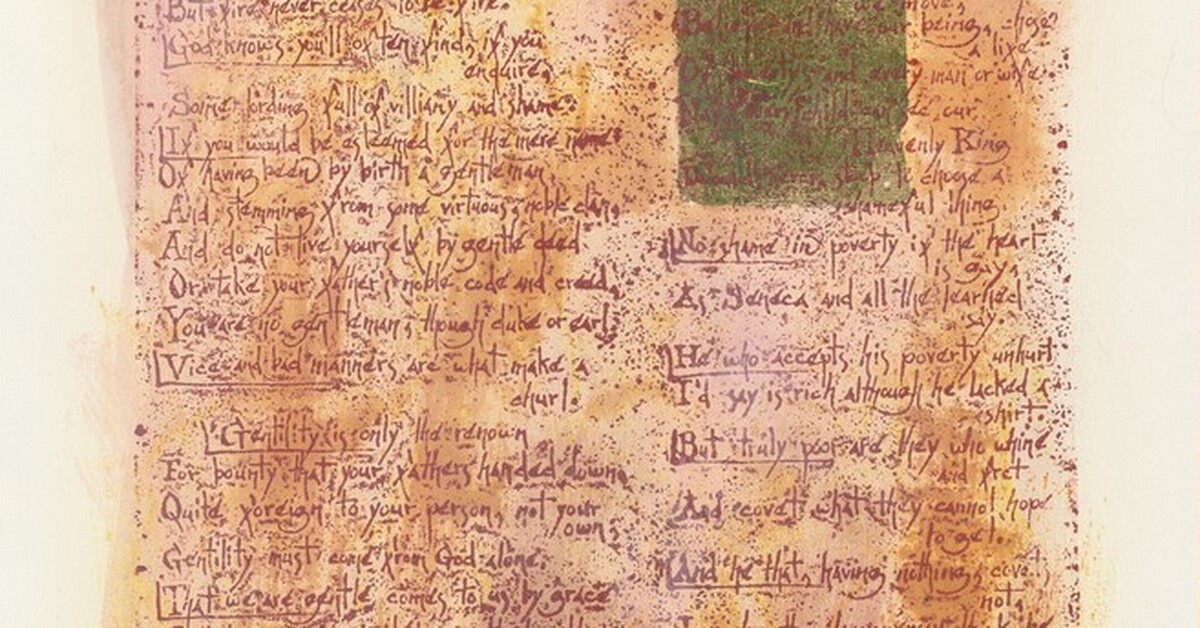 But fire never ceases to be fire.
God knows you'll often find, if you
enquire,
Some lording full of villiany and shame.
If you would be esteemed for the mere name
Of having been by birth a gentleman,
And stemming from some virtuous, noble clan,
And do not live yourself by gentle deed
Or take your father's noble code and creed,
You are no gentleman, though duke or earl.
Vice and bad manners are what make a
churl.
Gentility is only the renown
For bounty that your fathers handed down,
Quite foreign to your person, not your
own;
Gentility must come from God alone.
That we are gentle comes to us by grace
we move,
being, chose
a life
and every man or wife
our
Heavenly King
choose a
shameful thing.
No shame in poverty if the heart
is gay,
As Seneca and all the learned
say.
He who accepts his poverty unhurt
I'd say is rich although he lacked a
shirt.
But truly poor are they who whine
and fret
And covet what they cannot hope
to get.
And he that, having nothing, covets
not,